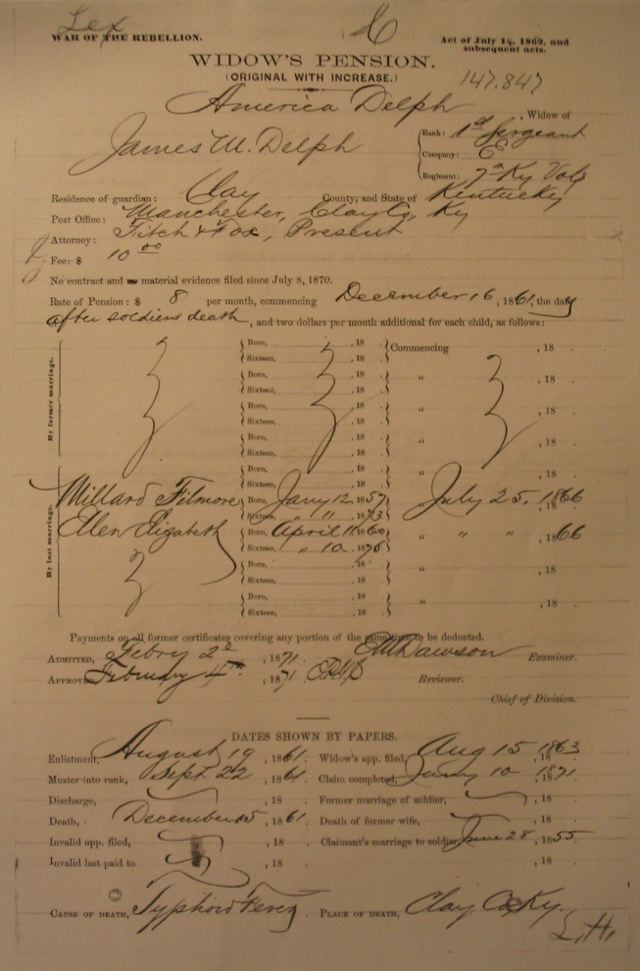 Lex
WAR OF THE REBELLION.
Act of July 14, 1862, and
subsequent acts.
WIDOW'S PENSION.
(ORIGINAL WITH INCREASE.)
147.847
America Delph, Widow of
James M. Delph
Rank: 1st Sergeant
Company: E
Regiment: 7th Ky Vols
Residence of guardian: Clay County, and State of Kentucky
Post Office: Manchester, Clay Co, Ky
Attorney: Fitch & Fox, Present
Fee: $ 10 00
No contract and no material evidence filed since July 8, 1870.
Rate of Pension: $ 8 per month, commencing December 16, 1861, the day
after soldiers death, and two dollars per month additional for each child, as follows:
By former marriage.
Born, , 18 . Commencing , 18 .
Sixteen, , 18 .
Born, , 18 . " , 18 .
Sixteen, , 18 .
Born, , 18 . " , 18 .
Sixteen, , 18 .
Born, , 18 . " , 18 .
Sixteen, , 18 .
By last marriage.
Born, , 18 . " , 18 .
Sixteen, , 18 .
Millard Filmore Born, Jany 12, 1857 July 25, 1866
Sixteen, " 11 1873
Ellen Elizabeth Born, April 11 1860 " " " , 1866
Sixteen, " 10, 1876
Born, , 18 . " , 18 .
Sixteen, , 18 .
Born, , 18 . " , 18 .
Sixteen, , 18 .
Payments on all former certificates covering any portion of the same time to be deducted.
ADMITTED, Febry 2d, 1871, Dawson Examiner.
APPROVED, February 4th, 1871, Reviewer.
Chief of Division.
DATES SHOWN BY PAPERS.
Enlistment, August 19, 1861. Widow's app. filed, Aug 15 1863
Muster into rank, Sept 22, 1861 Claim completed, Jany 10 1871
Discharge, , 18 . Former marriage of soldier, , 18 .
Death, December 15, 1861. Death of former wife, , 18 .
Invalid app. filed, , 18 . Claimant's marriage to soldier, June 28, 1855
Invalid last paid to , 18 . , 18 .
CAUSE OF DEATH, Typhoid Fever PLACE OF DEATH, Clay Co Ky.
L.H.